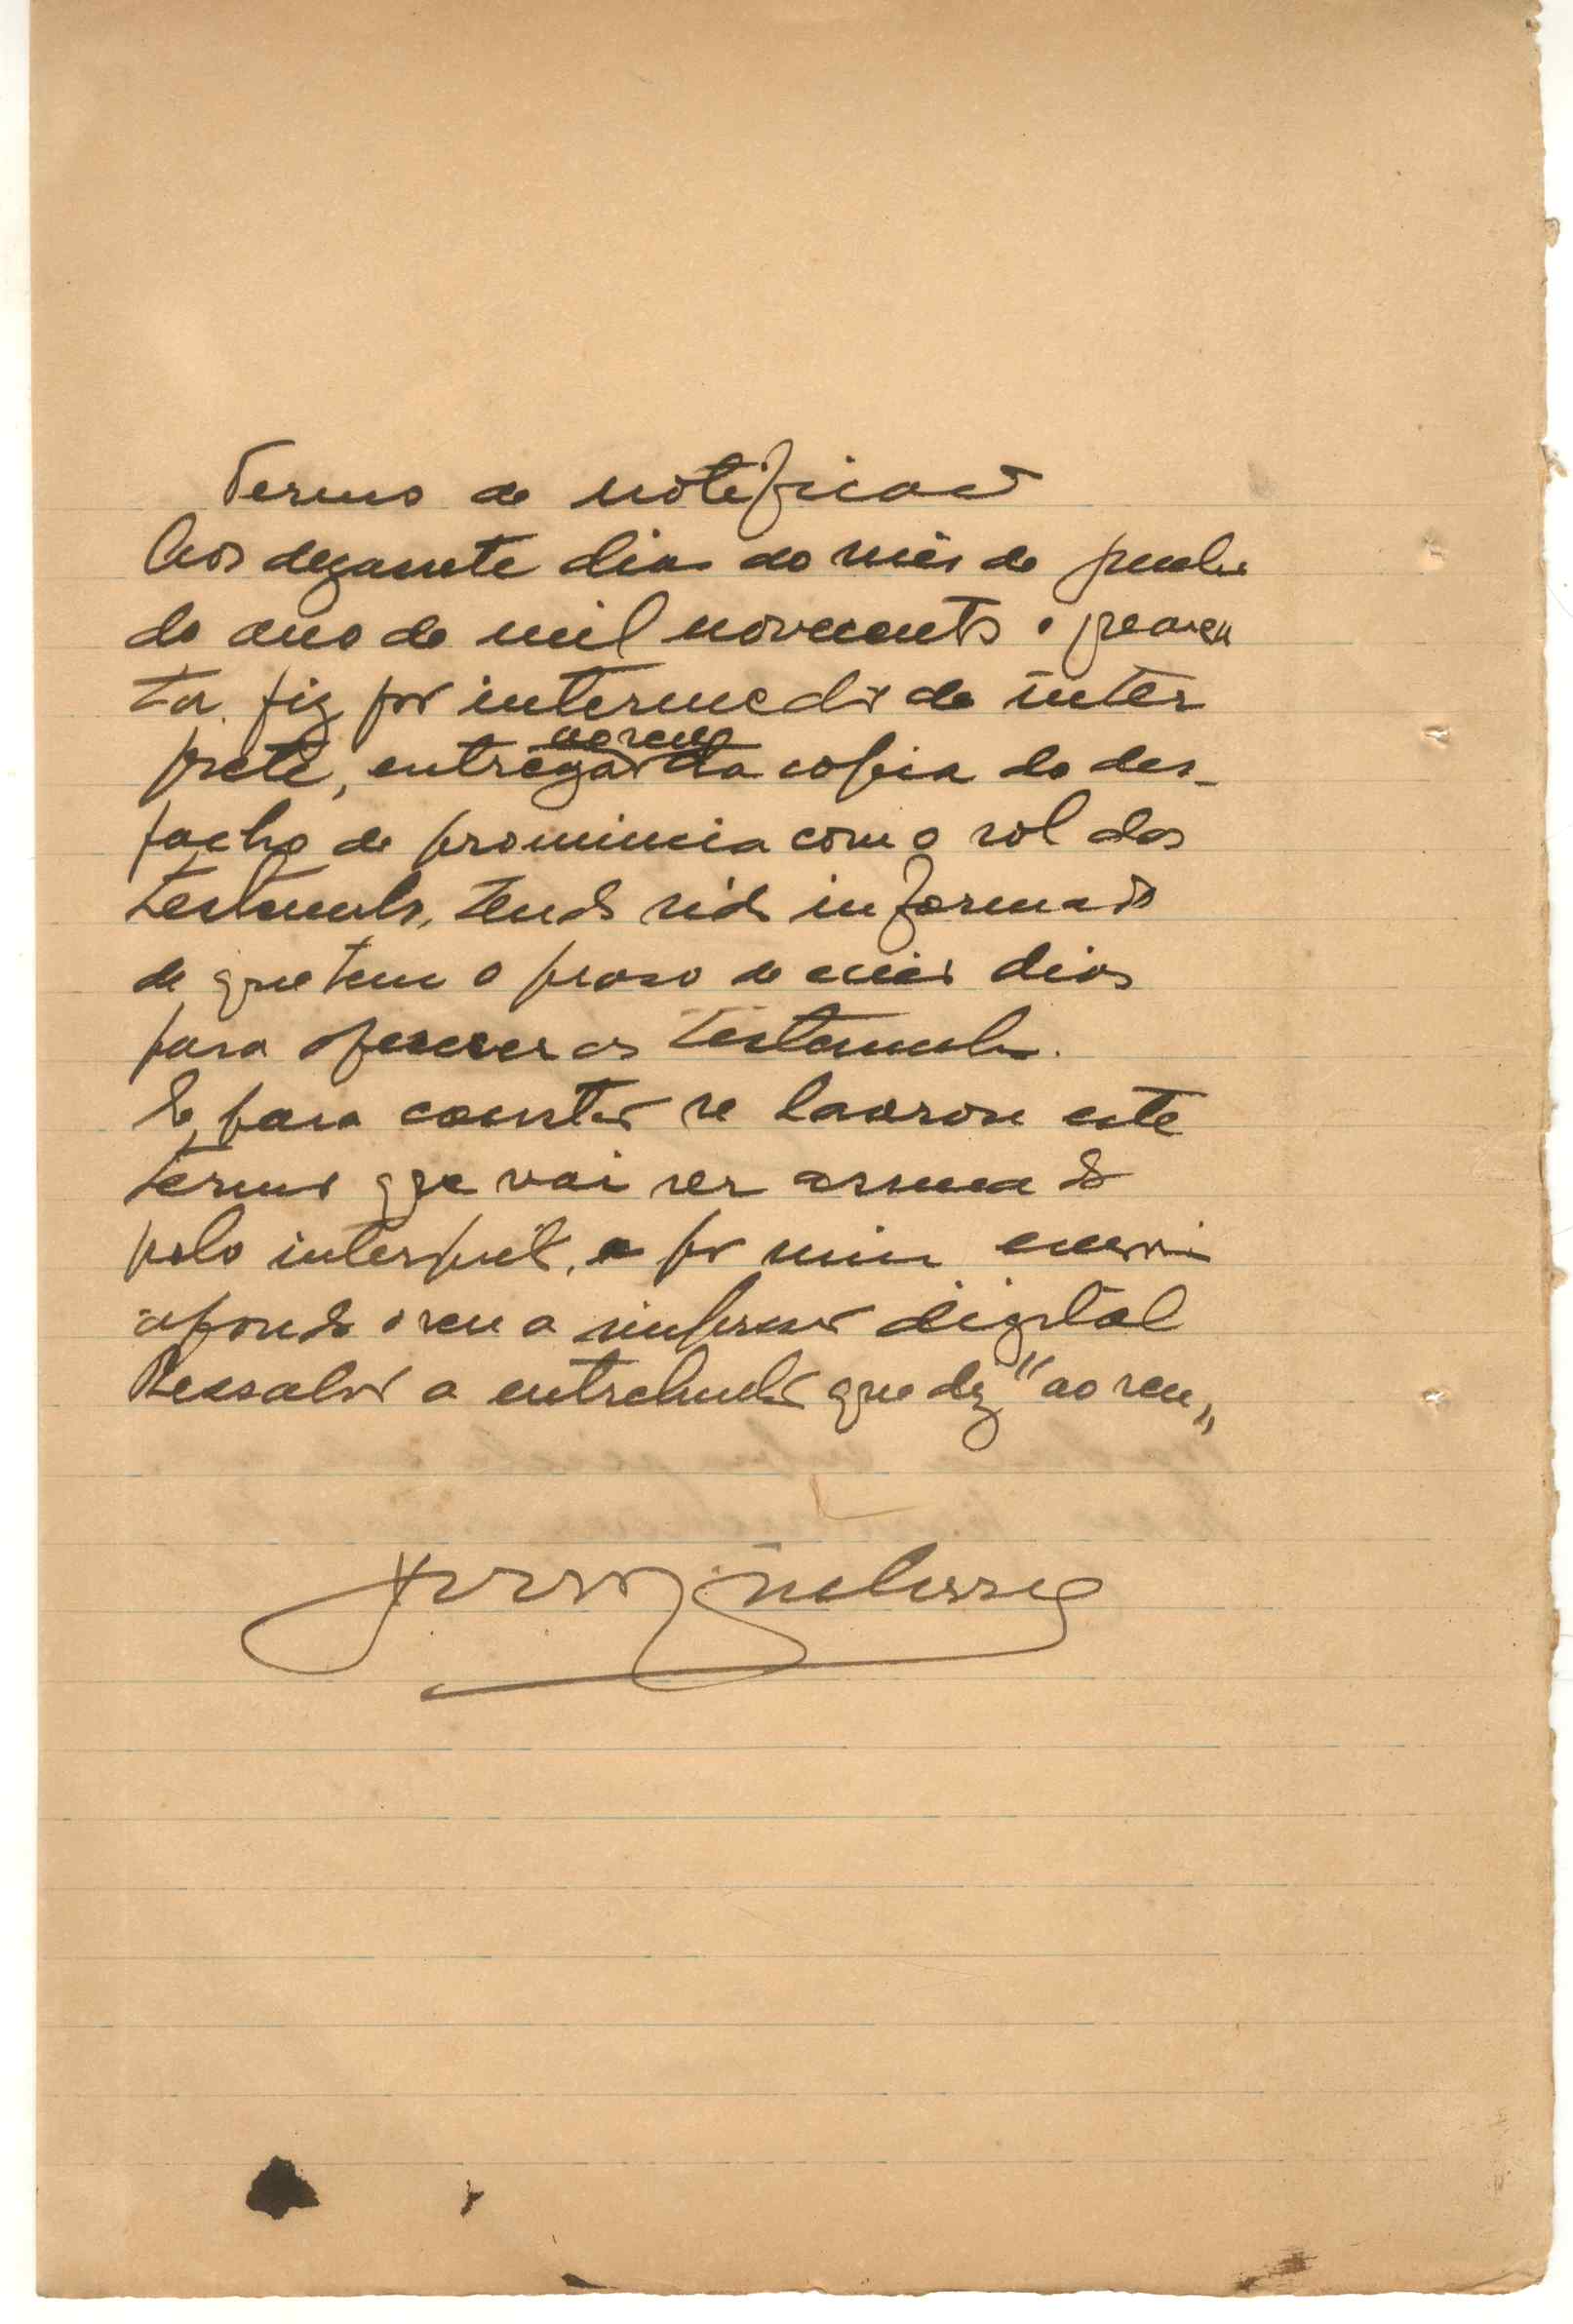 Termo de notificação
Aos dezassete dias do mês de Junho
do ano de mil novecentos e quaren
ta, fiz por intermedio do inter
prete, entregar
ao reu
da copia do des-
pacho de pronuncia com o rol das
testemunhas, tendo sido informado
de que tem o praso de cinco dias
para oferecer as testemunhas.
E, para constar se lavrou este
termo que vai ser assinado
pelo interprete, e por mim escrivão
apondo o reu a impressão digital
Ressalvo a entrelinha que diz "ao reu"